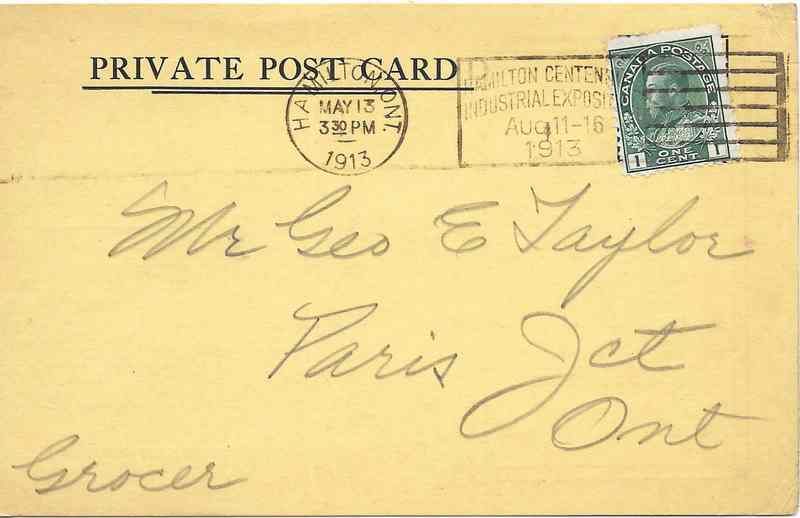 PRIVATE POST CARD
HAMILTON, ONT.
MAY 13
3 30 PM
1913
HAMILTON CENTEN
INDUSTRIAL EXPOSIT
Aug 11-16
1913
CANADA POSTAGE
1 ONE CENT 1
Mr Geo E Taylor
Paris Jct
Ont
Grocer